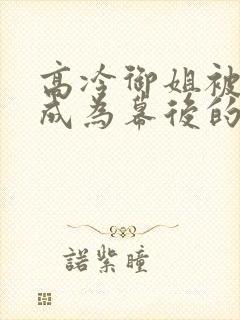 高冷御姐被
成为幕後的
諾紫瞳